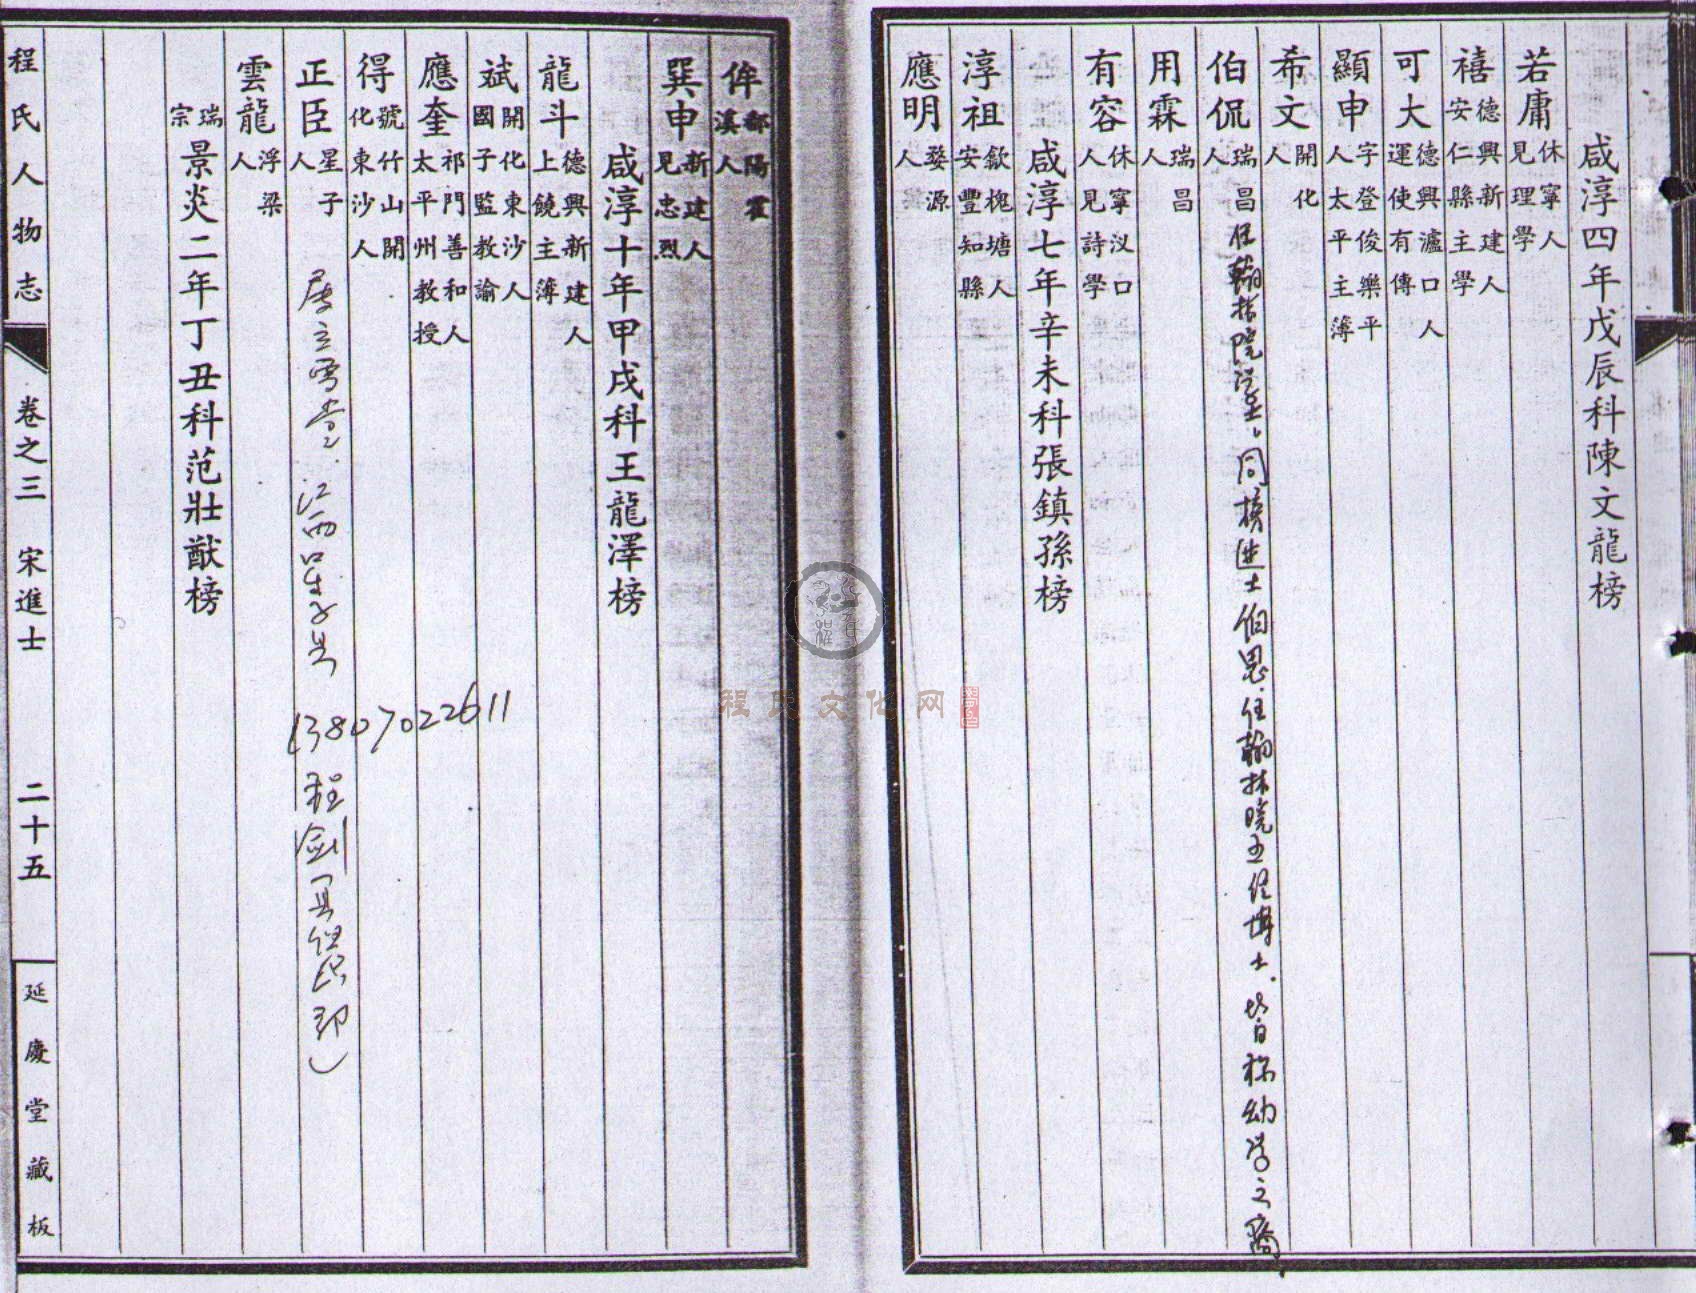 咸淳四年戊辰科陳文龍榜
若庸 休寧人見理學
禧 德興新建人安仁縣主學
可大 德興瀘口人運使有傳
顯申 字登俊樂平人太平主簿
希文 開化人
伯侃 瑞昌人 任翰林院學士，同榜進士伯思任翰林院五經博士．皆称幼学之裔
用霖 瑞昌人
有容 休寧汊口人見詩學
咸淳七年辛未科張鎮孫榜
淳祖 歙槐塘人安豐知縣
應明 婺源人
侔 鄱陽霍溪人
巽申 新建人見忠烈
咸淳十年甲戌科王龍澤榜
龍斗 德興新建人上饒主簿
斌 開化東沙人國子監教諭
應奎 祁門善和人太平州教授
得 號竹山開化東沙人
正臣 星子人 江西星子县
13807022611
程剑
雲龍 浮梁人
瑞宗 景炎二年丁丑科范壯猷榜
程氏人物志 卷之三 宋進士 二十五 延慶堂藏板
程氏文化网